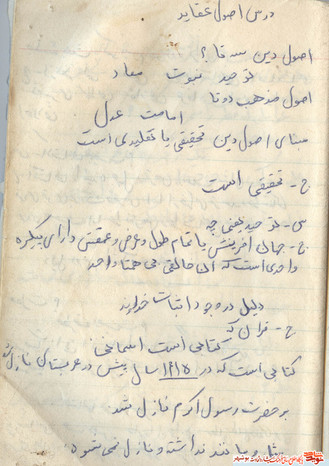 درس اصول عقاید
اصول دین سه تا؟
توحید نبوت معاد
اصول مذهب دو تا
امامت عدل
مبنای اصول دین تحقیقی یا تقلیدی است
ج - تحقیقی است
س - توحید یعنی چه
ج - جهان آفرینش با تمام طول و عرض و عمقش دارای پیکره
واحدی است که آن خالقی بی همتا واحد
دلیل در وجود اثبات خداوند
ج - قرآن که
کتابی است آسمانی
کتابی است که در ۱۴۱۵ سال پیش در عربستان نازل شد
بر حضرت رسول اکرم نازل شد
مثل و مانند نداشته و نازل نمی شود